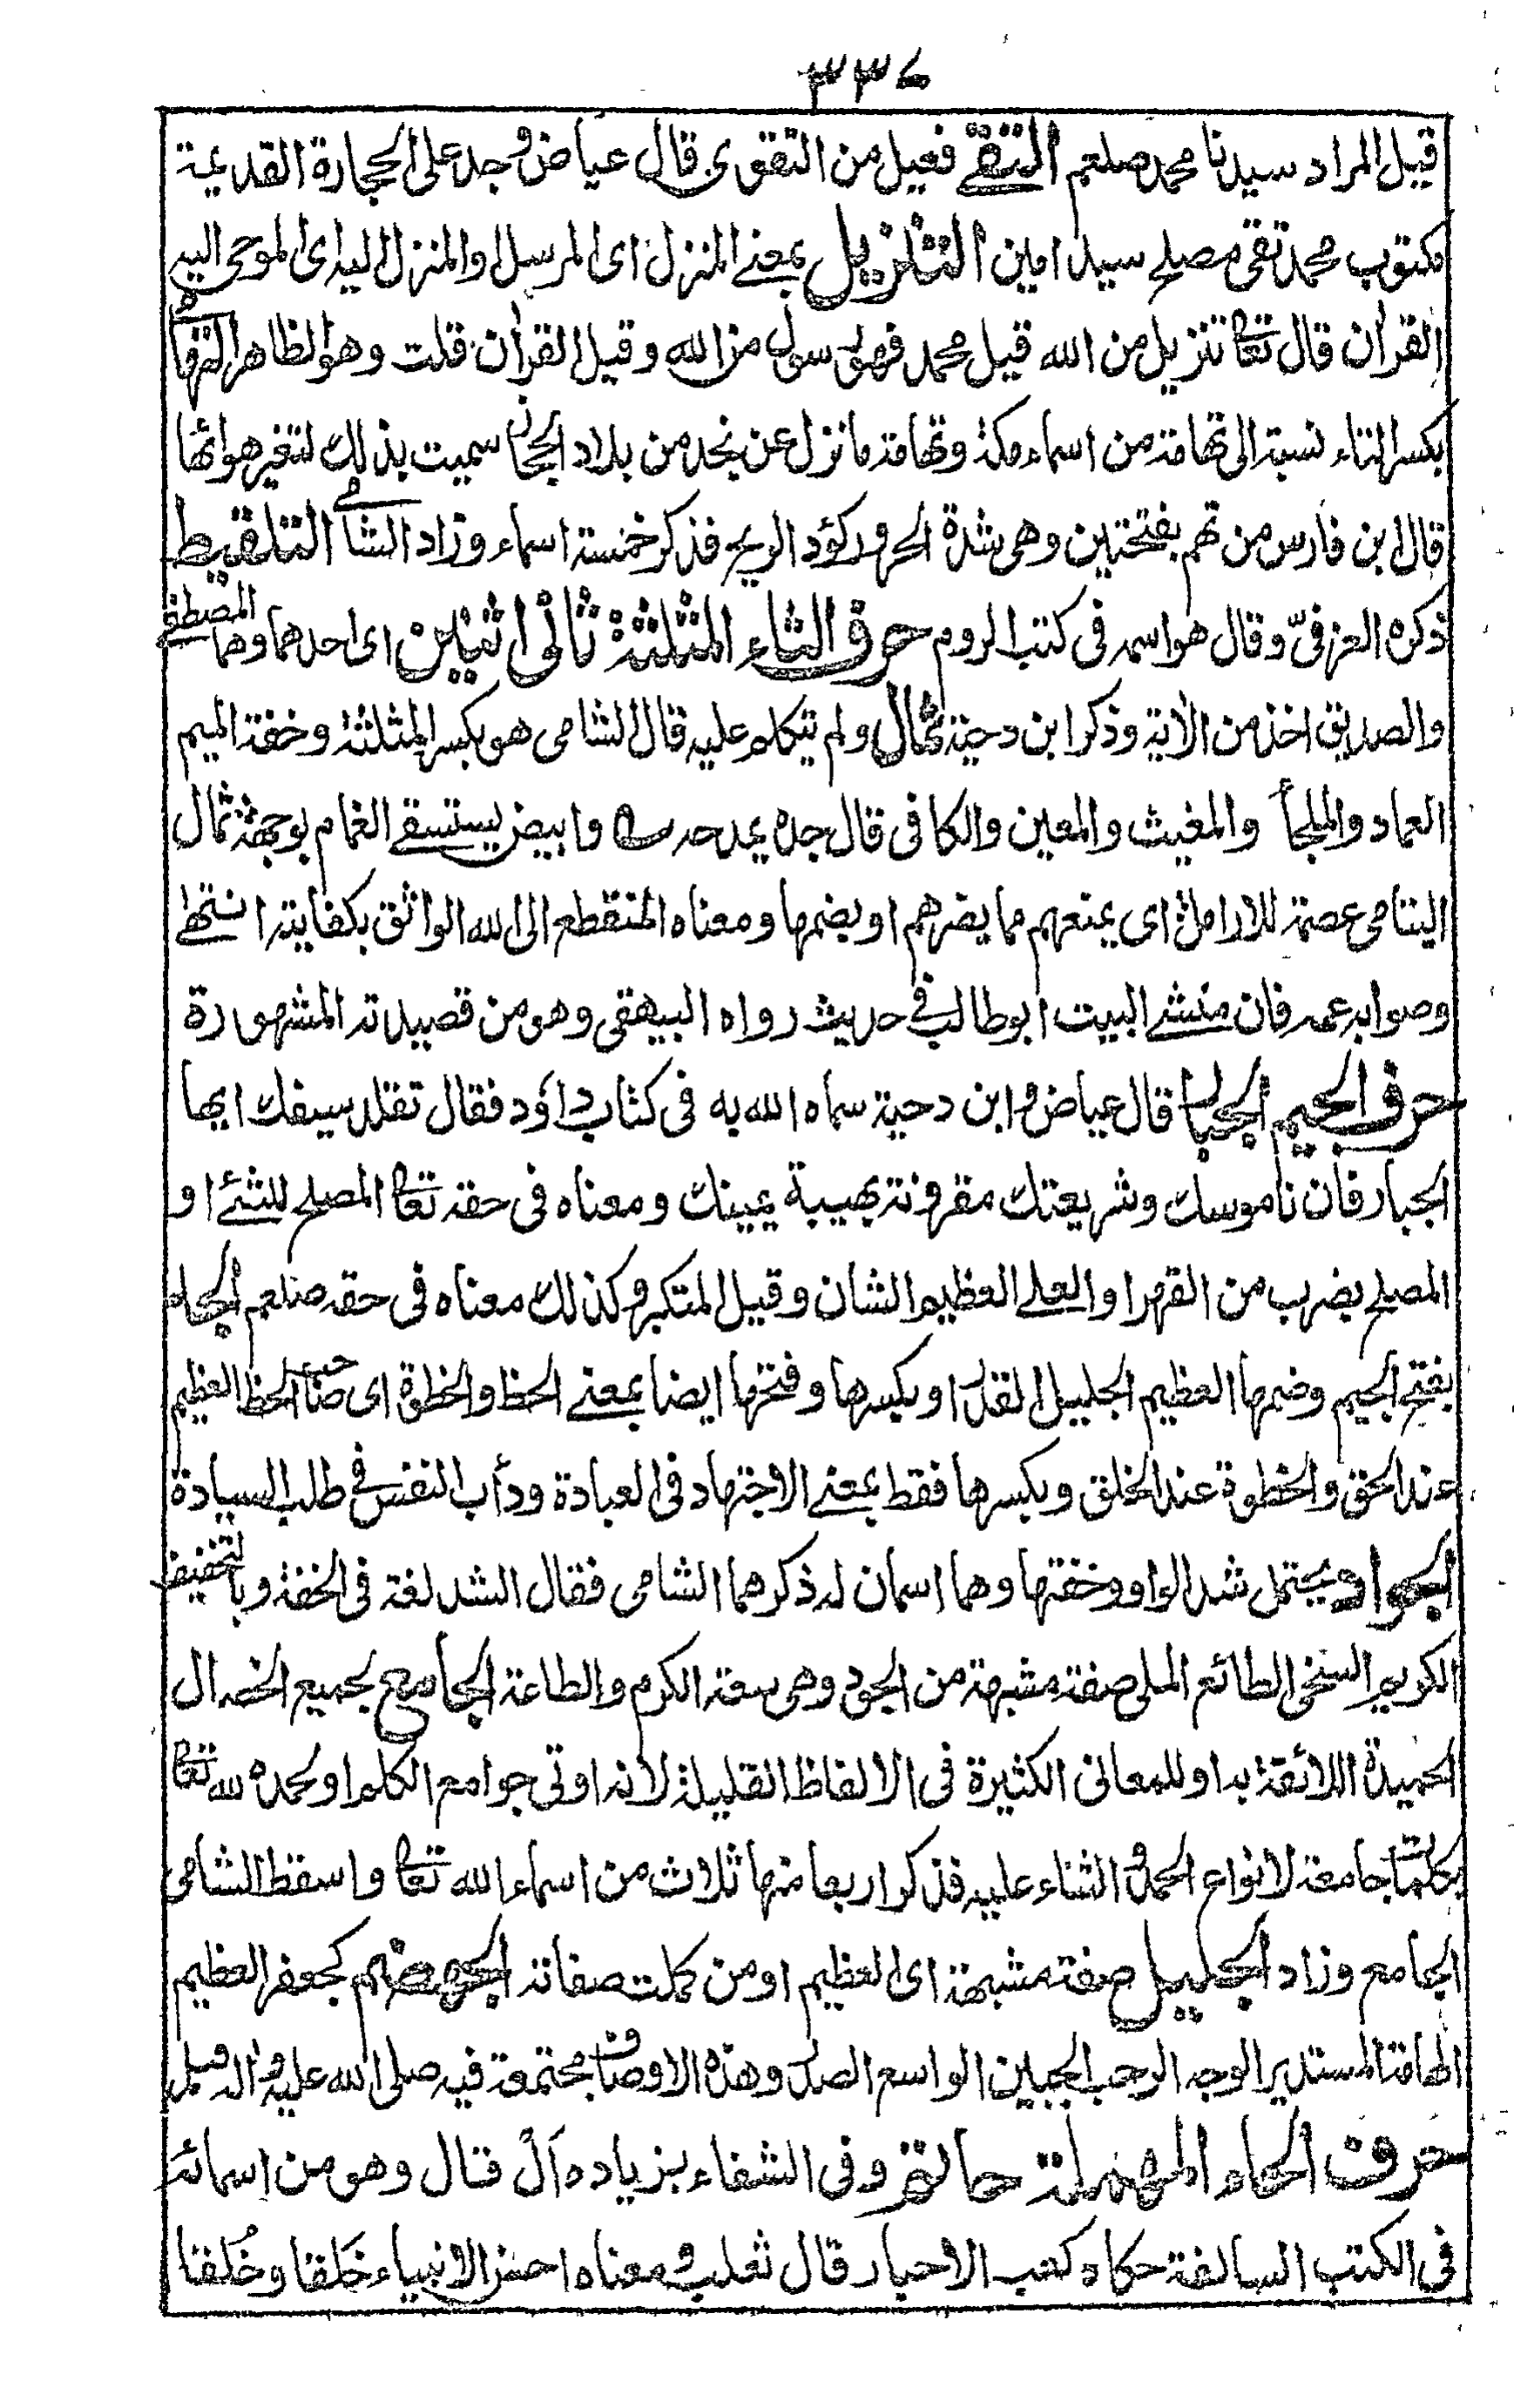 ٣٣٦
قيل المراد سيدنا محمد صلعم التقي فعيل من التقوى قال عياض وجد على الحجارة القديمة
مكتوب محمد تقى مصلح سيد امين التنزيل بمعنے المنزل اى المرسل او المنزل اليه اى الموحى اليه
القرأن قال تعالى تنزيل من الله قيل محمد فهو رسول من الله وقيل القرأن قلت وهو الظاهر التهامى
بكسر التاء نسبة الى تهامة من اسماء مكة وتهامة ما نزل عن نجد من بلاد الحجاز سميت بذلك لتغير هوائها
قال ابن فارس من تهم بفتحتين وهى شدة الحر وركود الريح فذكر خمسة اسماء وزاد الشامى التلقيط
ذكره العزفىّ وقال هو اسمه فى كتب الروم حرف الثاء المثلثة ثانى اثنين اى احدهما وهما المصطفے
والصديق اخذ من الأية وذكر ابن دحية ثمال ولم يتكلم عليه قال الشامى هو بكسر المثلثة وخفة الميم
العماد والملجأ والمغيث والمعين والكافى قال جده يمدحه وابيض يستسقے الغمام بوجهه ثمال
اليتامى عصمة للارامل اى يمنعهم مما يضرهم او يضمها ومعناه المنقطع الى الله الواثق بكفايته انتهى
وصوابه عمه فان منشئ البيت ابو طالب فے حديث رواه البيهقى وهو من قصيدته المشهورة
حرف الجيم الجبار قال عياض وابن دحية سماه الله به فى كتاب داؤد فقال تقلد سيفك ايها
الجبار فان ناموسك وشريعتك مقرونة بهيبة يمينك ومعناه فى حقه تعالى المصلح للشئ او
المصلح بضرب من القهر او العلے العظيم الشان وقيل المتكبر وكذلك معناه فى حقه صلعم الجد
بفتح الجيم وضمها العظيم الجليل القدر او بكسرها وفتحها ايضا بمعنے الحظ والحظوة اى صاحب الحظ العظيم
عند الحق والحظوة عند الخلق وبكسرها فقط بمعنے الاجتهاد فى العبادة ودأب النفس فے طلب السيادة
الجواد يحتمل شد الواو وخفتها وهما اسمان له ذكرهما الشامى فقال الشد لغة فى الخفة وبالتخفيف
الكريم السخى الطائع الملى صفة مشبهة من الجود وهى سعة الكرم والطاعة الجامع لجميع الخصال
الحميدة اللائقة به او للمعانى الكثيرة فى الالفاظ القليلة لانه اوتى جوامع الكلم او لحمده لله تعالى
بكلمات جامعة لانواع الحمد والثناء عليه فذكر اربعا منها ثلاث من اسماء الله تعالى واسقط الشامى
الجامع وزاد الجليل صفة مشبهة اى العظيم او من كملت صفاته الجهضم كجعفر العظيم
الهامة المستدير الوجه الرحب الجبين الواسع الصدر وهذه الاوصاف مجتمعة فيه صلى الله عليه واله وسلم
حرف الحاء المهملة حاتم وفى الشفاء بزياده اَلْ قال وهو من اسمائه
فى الكتب السالفة حكاه كعب الاحبار قال ثعلب ومعناه احسن الانبياء خَلقا وخُلقا